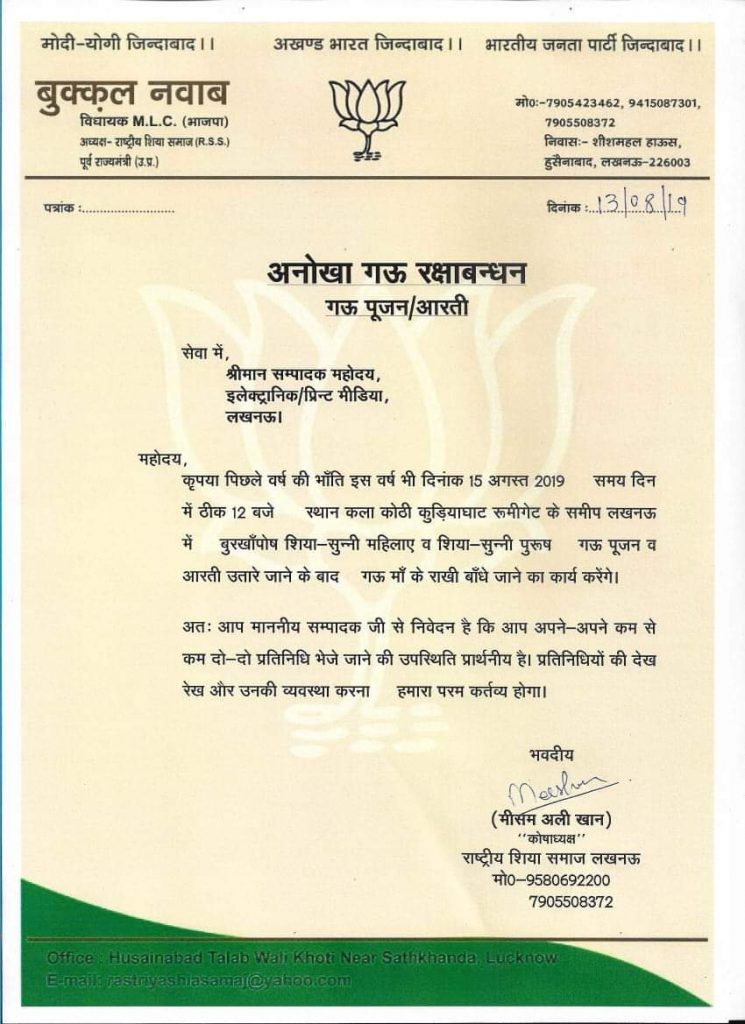 मोदी-योगी जिन्दाबाद।। अखण्ड भारत जिन्दाबाद।। भारतीय जनता पार्टी जिन्दाबाद।।
बुक्क़ल नवाब
विधायक M.L.C. (भाजपा)
अध्यक्ष- राष्ट्रीय शिया समाज (R.S.S.)
पूर्व राज्यमंत्री (उ.प्र.)
मो०:-7905423462, 9415087301,
7905508372
निवासः- शीशमहल हाऊस,
हुसैनाबाद, लखनऊ-226003
पत्रांक :..........................
दिनांक :..13/08/19
अनोखा गऊ रक्षाबन्धन
गऊ पूजन/आरती
सेवा में,
श्रीमान सम्पादक महोदय,
इलेक्ट्रानिक/प्रिन्ट मीडिया,
लखनऊ।
महोदय,
कृपया पिछले वर्ष की भाँति इस वर्ष भी दिनांक 15 अगस्त 2019 समय दिन
में ठीक 12 बजे स्थान कला कोठी कुड़ियाघाट रूमीगेट के समीप लखनऊ
में बुरखाँपोष शिया–सुन्नी महिलाए व शिया–सुन्नी पुरूष गऊ पूजन व
आरती उतारे जाने के बाद गऊ माँ के राखी बाँधे जाने का कार्य करेंगे।
अतः आप माननीय सम्पादक जी से निवेदन है कि आप अपने–अपने कम से
कम दो–दो प्रतिनिधि भेजे जाने की उपस्थिति प्रार्थनीय है। प्रतिनिधियों की देख
रेख और उनकी व्यवस्था करना हमारा परम कर्तव्य होगा।
भवदीय
(मीसम अली खान)
''कोषाध्यक्ष''
राष्ट्रीय शिया समाज लखनऊ
मो0–9580692200
7905508372
Office : Husainabad Talab Wali Khoti Near Sathkhanda, Lucknow
E-mail: rastriyashiasamaj@yahoo.com